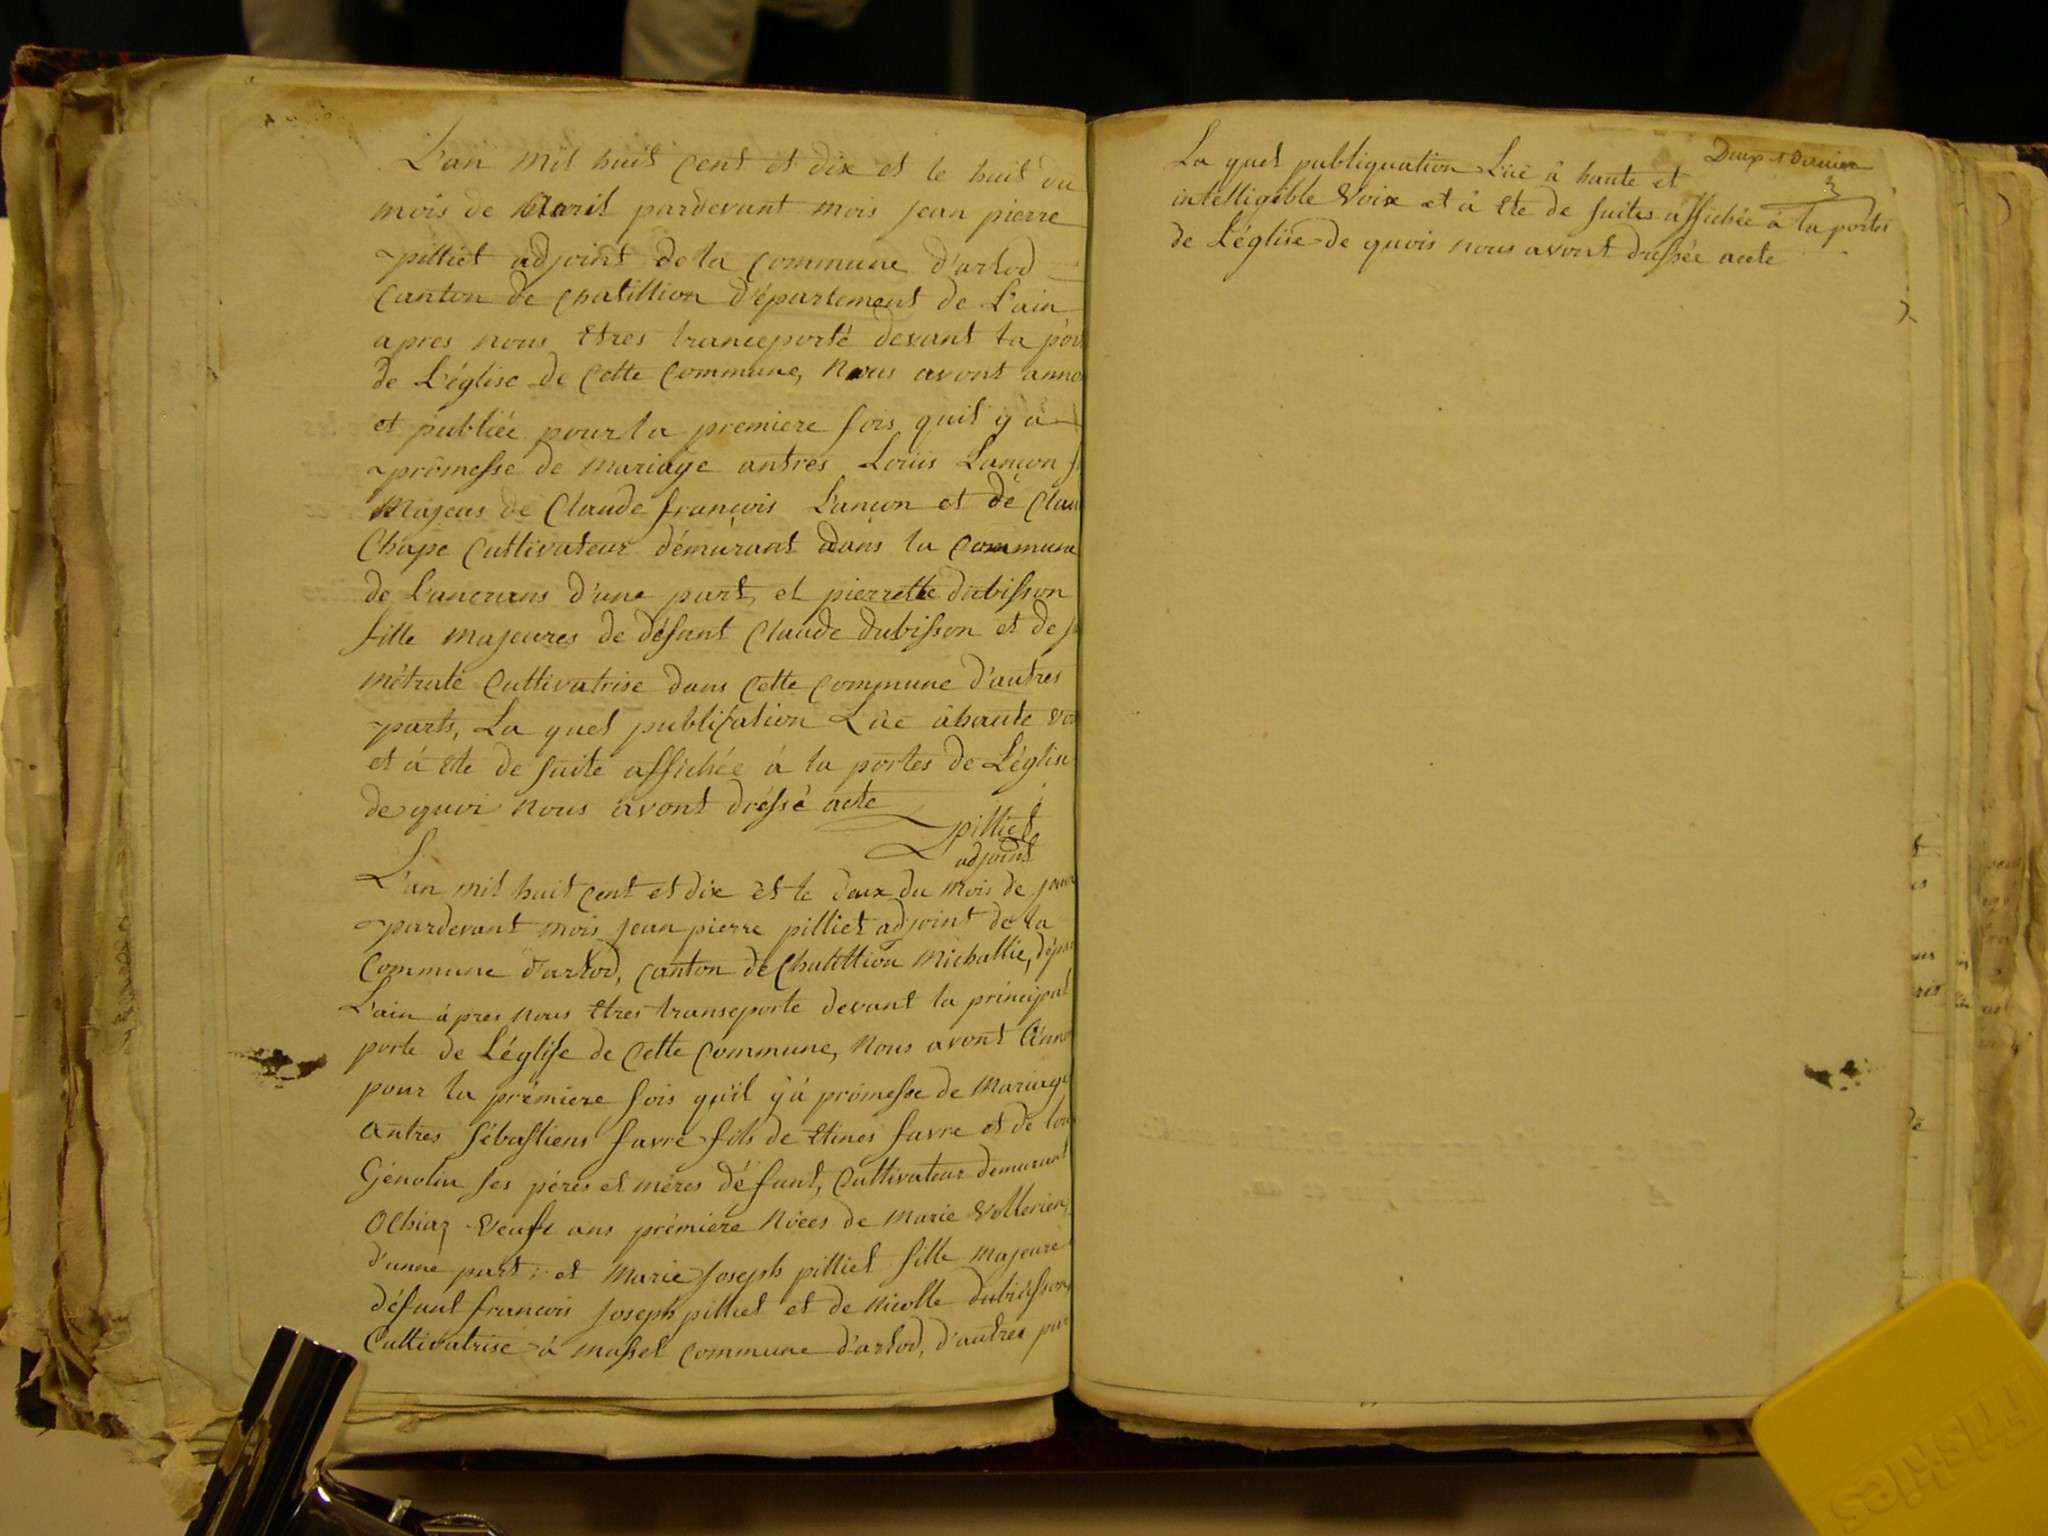 L'an mil huit cent et dix et le huit du
mois de Avril pardevant mois jean pierre
pilliet adjoint de la commune d'arlod
Canton de chatillion département de L'ain
apres nous Etres tranceporté devant la
de L'église de Cette Commune, Nous avont
et publiée pour la premiere fois quil y à
prômesse de mariage antres Louis Lançon
Majeus de Claude françois Lançon et de
Chape Cultivateur démurant dans la Commune
de Lancrans d'une part, et pierrette dubisson
fille majeures de défant Claude dubisson et de
métrale Cultivatrise dans Cette Commune d'autres
parts, La quel publication Lue à haute
et à Ete de suite affichée à la portes de L'église
de quoi nous avont dréssé acte
pilliet
adjoint
L'an mil huit cent et dix et le deux du mois de
pardevant mois jean pierre pilliet adjoint de la
Commune d'arlod, canton de Chatillion Michallie,
L'ain àpres nous Etres transeporte devant la principal
porte de L'églife de Cette Commune, Nous avont
pour la prémiere fois qu'il y à promesse de Mariage
antres Sébastiens favre fils de Etines favre et de
Génolin ses péres et méres défunt, Cultivateur demurant
Ochiaz veufs ans prémiere Nóces de Marie Vollerien,
d'unne part; et Marie Joseph pilliet fille majeure
défunt francois Joseph pilliet et de Nicolle dubiásson,
Cultivatrise à Massel commune d'arlod, d'autres
La quel publiquation Lue à haute et
intelligible Voix et à Ete de suites affichée à la portes
de L'église de quois nous avont dressée acte
Friskies